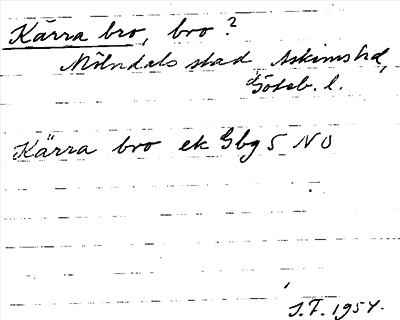 Kärra bro, bro?
Mölndals stad Askims hd,
Göteb. l.
Kärra bro ek Gbg 5 NO
J.F. 1954.